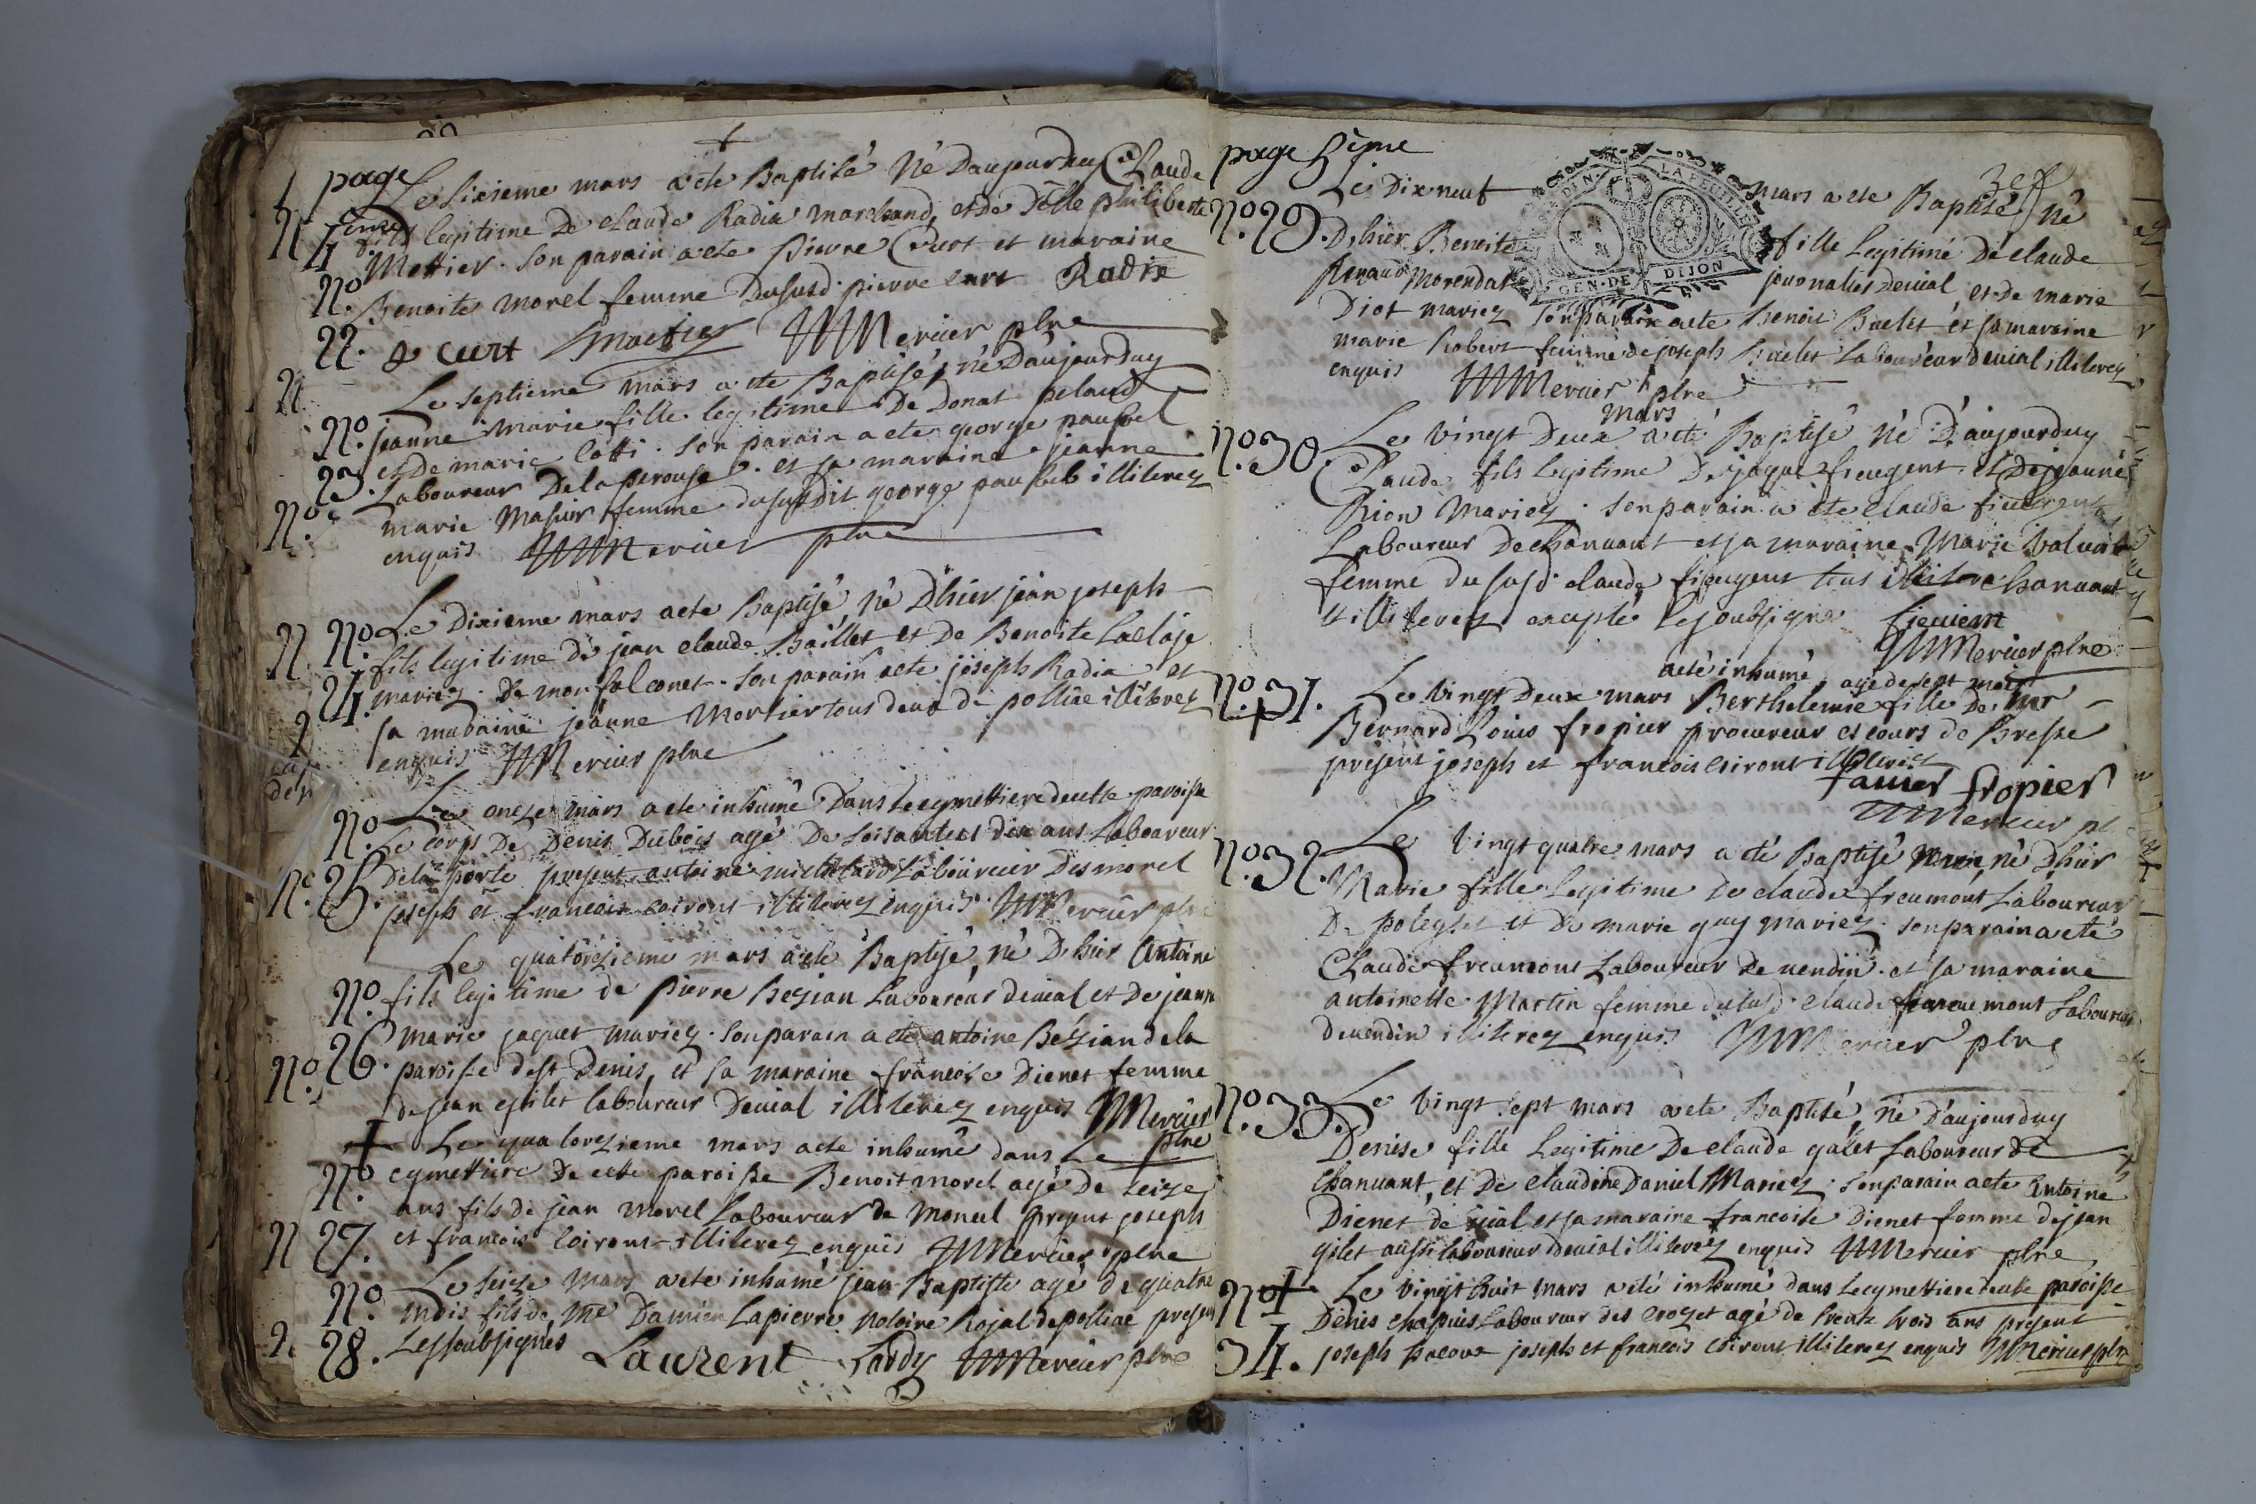 page
4eme
Le sixieme mars a ete Baptisé Né Daujourduy Claude
fils legitime De claude Radix marchand, et de Delle philiberte
Mettier. son parain a ete Pierre Curt et maraine
Benoite morel femme Dususd. pierre curt Radix
No. 22.
curt mettier Mercier ptre
Le septieme mars a ete Baptisé, né Daujourduy
No. 23.
jeanne marie fille legitime De Donat
et de marie Cotti. son parain a ete george paufel
Laboureur Delaperouse. et sa maraine jeanne
marie femme dususdit george illiterez
enquis Mercier ptre
Le Dixieme mars a ete Baptisé, né Dhier jean joseph
No. 24.
fils legitime de jean claude Baillet et De Benoite
mariez. De monfalconet. son parain a ete joseph Radix et
sa maraine jeanne Mortier tous deux de polliac illiterez
enquis Mercier ptre
Le onze mars a ete inhumé Dans le cymettiere de cette paroisse
No. 25.
Le corps De Denis Dubois agé De soisante et dix ans Laboureur
Delaporte present antoine michelard Laboureur Desmorel
joseph et francois coiront illiterez enquis Mercier ptre
Le quatorzieme mars a ete Baptisé, né Dhier Antoine
No. 26.
fils legitime de Pierre Bezian Laboureur devial et De jeanne
marie jaquet mariez. son parain a ete antoine Bezian de la
paroisse de st Denis, et sa maraine francoise Dienet femme
de jean gilet laboureur Devial illiterez enquis Mercier
ptre
Le quatorzieme mars a ete inhumé dans Le
No. 27.
cymettiere De cette paroisse Benoit morel agé De seize
ans fils de jean morel Laboureur de present joseph
et francois Coiront illiterez enquis Mercier ptre
Le seize mars a ete inhumé jean Baptiste agé de quatre
No. 28.
mois fils de Me Damien Lapierre notaire Rojal de polliac present
Lessoubsignés Laurent Lardy Mercier ptre
page 5eme
GEN·DE DIJON
Le Dix neuf mars a ete Baptisé, né
No. 29.
Dhier Benoite fille Legitime De claude
Renaud Morendat journalier devial, et de marie
Diot mariez son parain a ete Benoit Buclet et sa maraine
marie Robert femme de joseph Buclet Laboureur devial illiterez
enquis Mercier ptre
mars
No. 30
Le vingt Deux a eté Baptisé né D'aujourduy
Claude fils legitime De jaque et De jeanne
Rion Mariez. son parain a ete claude
Laboureur De chanuant et sa maraine Marie
femme du susd. claude tous chanuant
illiterez excepté le soubsigné
Mercier ptre
a eté inhumé agé de sept mois
No. 31.
Le vingt Deux mars Berthelemie fille De mr
Bernard Louis fropier procureur es cours de Bresse
present joseph et francois coiront
fropier
Mercier
No. 32.
Le vingt quatre mars a été Baptisé né Dhier
Marie fille legitime De claude freumont Laboureur
et De marie guy mariez. son parain a eté
Claude freumont Laboureur De uendin. et sa maraine
antoinette Martin femme dususd. claude Laboureur
deuendin illiterez enquis Mercier ptre
No. 33.
Le vingt sept mars a ete Baptisé, né D'aujourduy
Denise fille Legitime De claude galet Laboureur de
Chanuant, et De claudine Daniel Mariez. son parain a ete Antoine
Dienet de vial et sa maraine francoise Dienet femme de jean
gilet aussi laboureur devial illiterez enquis Mercier ptre
No. 34.
Le vingt huit mars a eté inhumé dans le cymettiere de cette paroisse
Denis chapuis Laboureur des crozet agé de trente trois ans present
joseph joseph et francois coiront illiterez enquis Mercier ptre